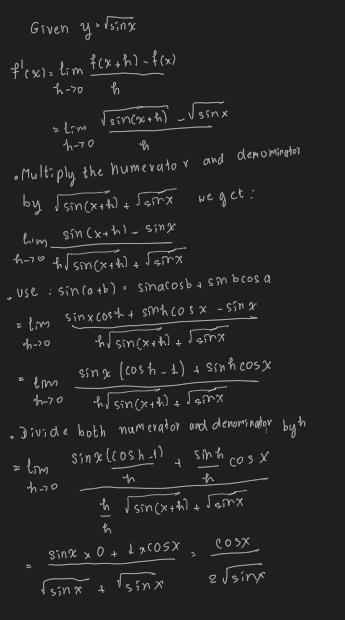 Given y = √sinx
f'(x) = lim h→0 (f(x+h) - f(x)) / h
= lim h→0 (√sin(x+h) - √sinx) / h
• Multiply the numerator and denominator
by √sin(x+h) + √sinx we get :
lim h→0 (sin(x+h) - sinx) / (h√sin(x+h) + √sinx)
• use : sin(a+b) = sinacosb + sinbcosa
= lim h→0 (sinxcosh + sinhcosx - sinx) / (h√sin(x+h) + √sinx)
= lim h→0 (sinx(cosh - 1) + sinhcosx) / (h√sin(x+h) + √sinx)
• Divide both numerator and denominator by h
= lim h→0 (sinx(cosh-1)/h + sinh/h cosx) / (h/h √sin(x+h) + √sinx)
= (sinx x 0 + 1 x cosx) / (√sinx + √sinx) = cosx / 2√sinx